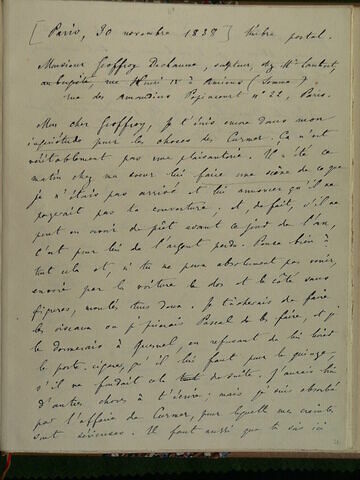 [Paris, 30 novembre 1838] timbre postal.
Monsieur Geoffroy Dechaume, sculpteur, chez Mr Lambert,
rue Henri IV à Amiens (Somme).
rue des Amandiers Popincourt nº 22, Paris.
Mon cher Geoffroy, Je t'écris encore dans mon
inquiétude pour les choses de Curmer. Ça n'est
véritablement pas une plaisanterie. Il a été ce
matin chez ma soeur lui faire une scène de ce que
je n'étais pas arrivé et lui annoncer qu'il ne
payerait pas la couverture ; et, de fait, s'il ne
peut en avoir de prêt avant ce jour de l'an,
c'est pour lui de l'argent perdu. Pense bien à
tout cela et, si tu ne peux absolument pas venir,
envoie par la voiture le dos et le côté sans
figures, moulés tous deux. Je tâcherais de faire
les oiseaux ou je prierais Pascal de les faire, et je
le donnerais à Quesnel, en refusant de lui livrer
le porte-cigares, qu'il lui faut pour le
s'il ne fondait cela tout de suite. J'aurais bien
d'autres choses à t'écrire ; mais je suis absorbé
par l'affaire de Curmer, pour laquelle mes craintes
sont sérieuses. Il faut aussi que tu sois ici